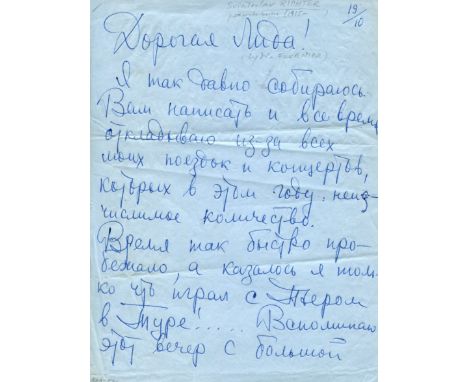 Sviatoslav RICHTER
19/10
Дорогая Лида!
Я так давно собираюсь
Вам написать и все время
откладываю из-за всех
моих поездок и концертов,
которых в этом году неис-
числимое количество.
Время так быстро про-
бежало, а казалось я толь-
ко что играл с Пьером
в Туре!..... Вспоминаю
этот вечер с большой